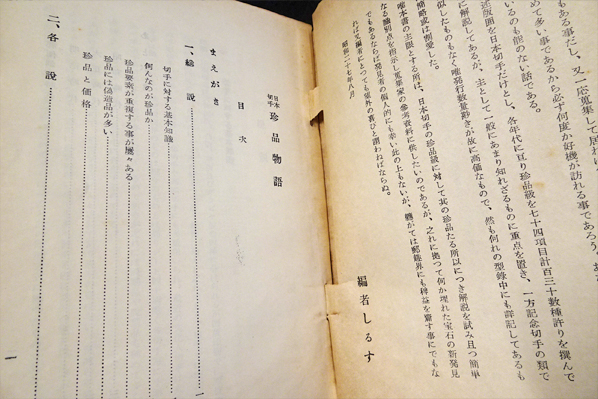 もある事だし、又一応蒐集して居れば
めて多い事であるから必ず何度か好機が訪れる事であろう。
いるのも能のない話である。
述版囲を日本切手だけとし、各年代に亙り珍品級を七十四項目計百三十数種許りを撰んで
に解説してあるが、主として一般にあまり知れざるものに重点を置き、一方記念切手の類で
似したものもなく唯発行数量尠きが故に高価なもので、然も何れの型録中にも詳記してあるも
簡略或は割愛した。
唯本書の主眼とする所は、日本切手の珍品級に対して其の珍品たる所以につき解説を試み且つ簡単
なる識別点を指示し蒐集家の参考資料に供したいのであるが、之れに拠って何か埋れた宝石の新発見
でもあるならば発見者の個人的にも幸い此の上もないが、軈がては郵趣界にも裨益を齎す事にでもな
れば又編者にとっても望外の喜びと謂わねばならぬ。
昭和二十七年八月
編者しるす
日本切手 珍品物語
目次
まえがき
一、総説 一
切手に対する基本知識
何んなのが珍品か
珍品要素が重複する事が屡々ある
珍品には偽造品が多い
珍品と価格
二、各説 一